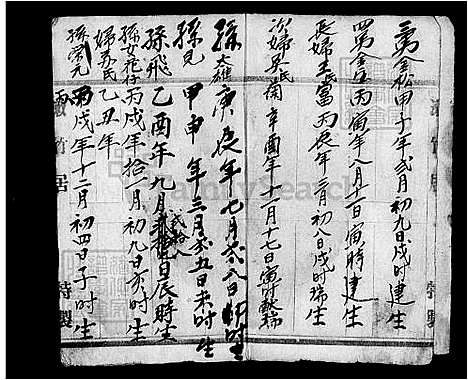 男金松甲子年弍月初九日戌時建生
四男金匡丙寅年八月十一日寅時建生
長婦王氏富丙辰年二月初八日戌時瑞生
次婦吳氏蘭辛酉年十一月十七日寅時瑞
孫大雄庚辰年七月弍八日卯时生
孫兒甲申年三月弍五日未时生
孫飛乙酉年九月日辰時生
孫女花仔丙戌年拾一月初九日亥时生
婦苏氏乙丑年
孫榮元丙戌年十二月初四日子时生
竹居
特製
特製
FamilySearch